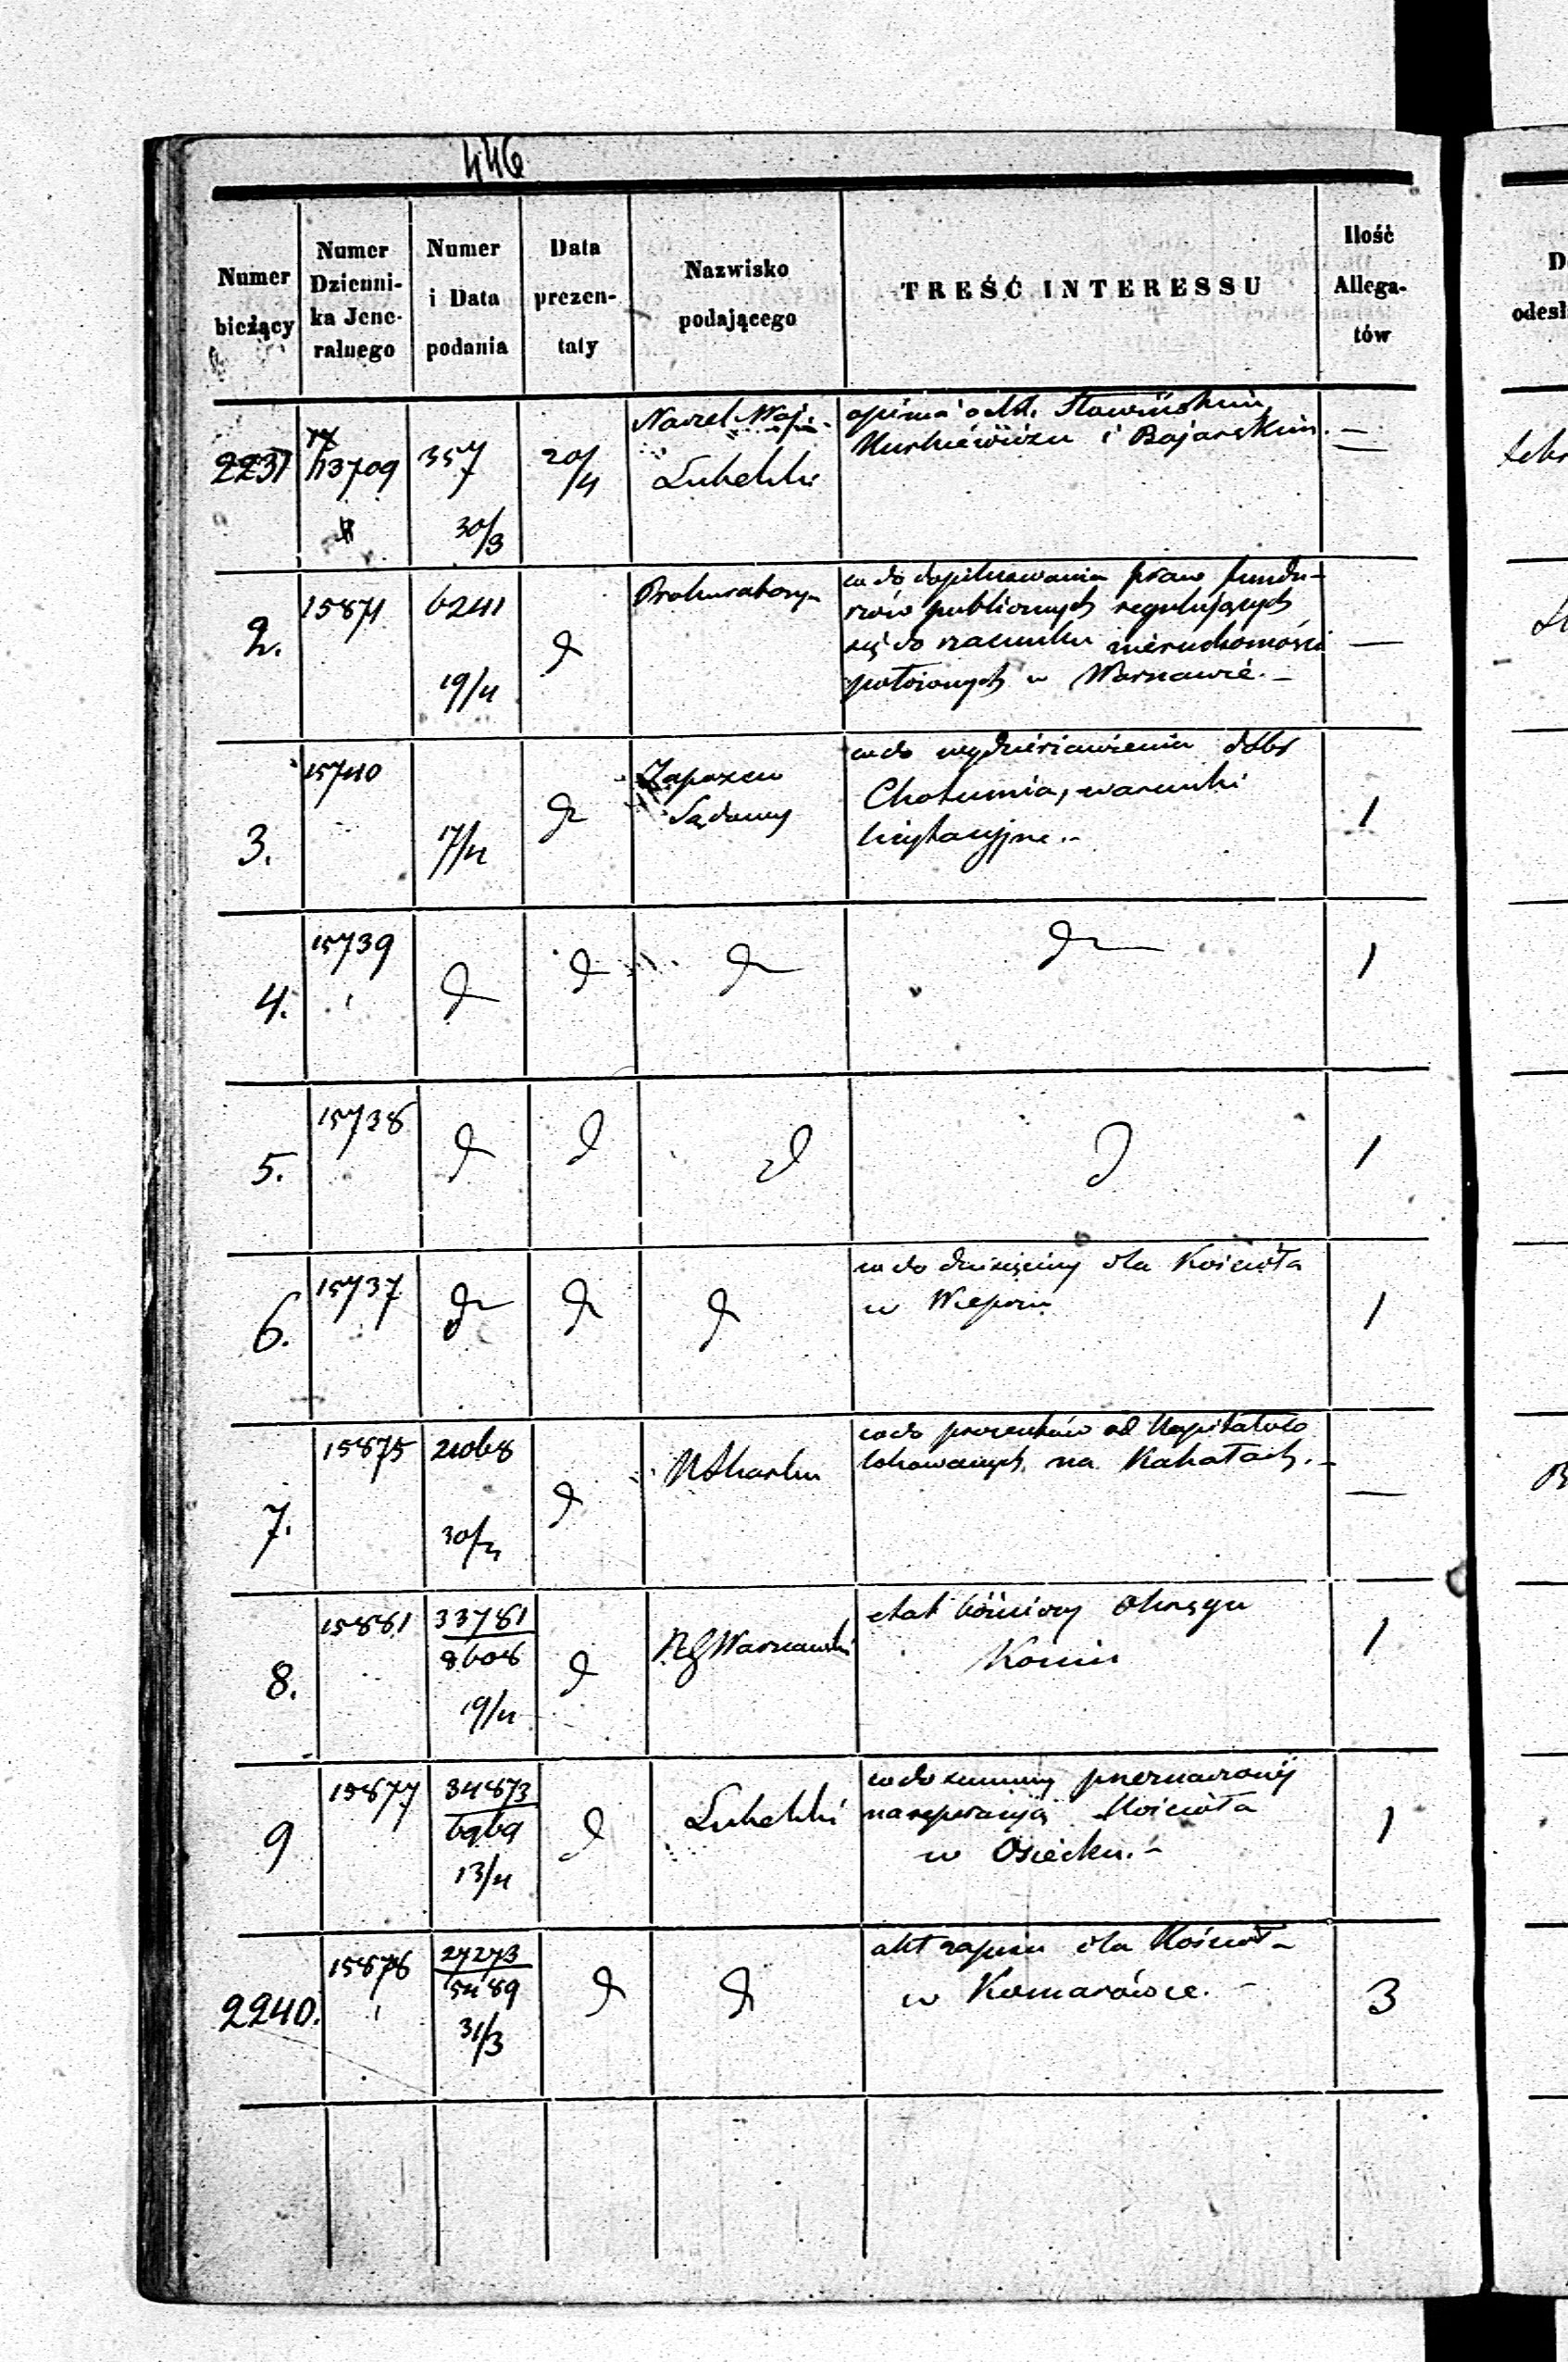 446
Numer bieżący
Numer Dzienni-ka Jene-ralnego
Numer i Data podania
Data prezen-taty
Nazwisko podającego
TREŚĆ INTERESSU
Ilość Allega-tów
2231 13709 357 30/3 20/4 Naczel. Woj. Lubelski
opinia o Stawińskim
i Bojarskim. —
2. 15871 6241 19/4 d Prokuratorya
co do dopilnowania praw fundu-
szów publicznych regulujących
się do szacunku nieruchomości —
położonych w Warszawie. —
3. 15740 17/4 d Zapozew Sądowy
co do wydzierżawienia dóbr
Chotumia, warunki
licytacyjne. — 1
4. 15739 d d d d 1
5. 15738 d d d d 1
6. 15737 d d d
co do dziesięciny dla Kościoła
w Wieprzu 1
7. 15875 21068 30/4 d
co do procentów od Kapitałów
lokowanych na Kahałach. — —
8. 15881 33781/8608 19/4 d RG Warszawski
etat leśniczy Okręgu
Konin 1
9 15877 34873/6969 13/4 d Lubelski
co do summy przeznaczonéj
na reperacyą Kościoła
w Osiecku. — 1
2240. 15876 27273/5489 31/3 d d
akt zapisu dla Kościoła
w Komarówce. — 3
D
odesł